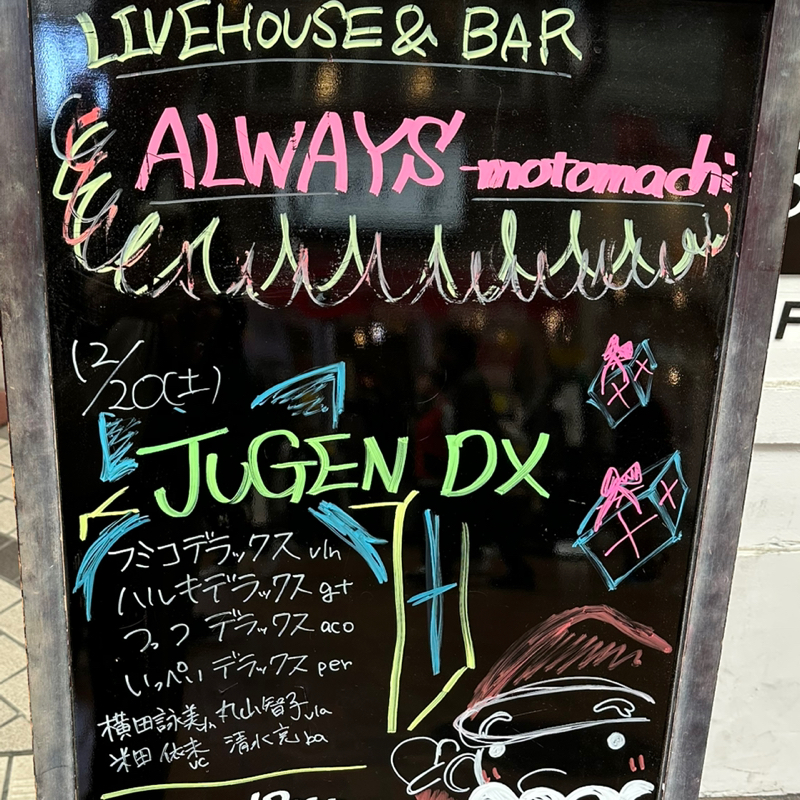 LIVEHOUSE & BAR
ALWAYS motomachi
12/20(土)
JUGEN DX
フミコデラックス vln
ハルキデラックス gt
つっつ デラックス aco
いっぺい デラックス per
横田詠美 vln 丸山智子 vla
米田 依未 vc 清水克 ba